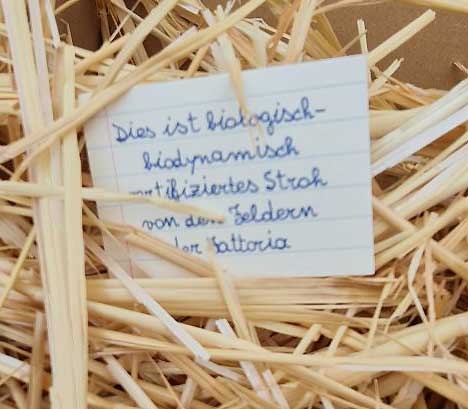 Dies ist biologisch-
biodynamisch
zertifiziertes Stroh
von den Feldern
der Fattoria